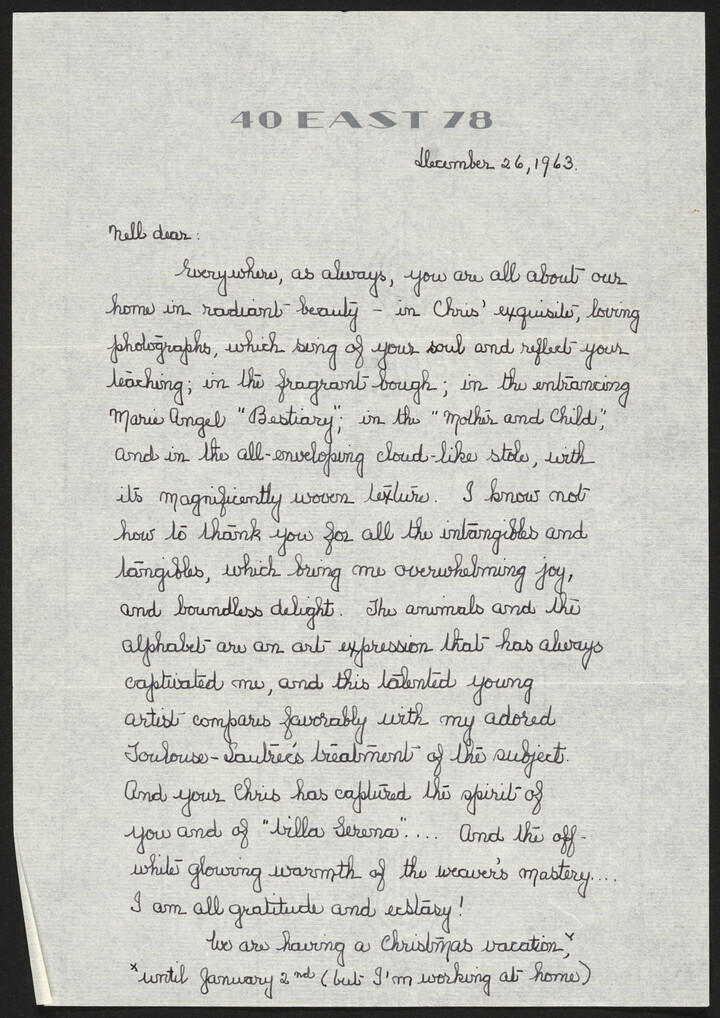 40 EAST 78
December 26, 1963.
Nell dear:
Everywhere, as always, you are all about our
home in radiant beauty – in Chris' exquisite, loving
photographs, which sing of your soul and reflect your
teaching; in the fragrant bough; in the entrancing
Marie Angel "Bestiary"; in the "Mother and Child",
and in the all-enveloping cloud-like stole, with
its magnificently woven texture. I know not
how to thank you for all the intangibles and
tangibles, which bring me overwhelming joy,
and boundless delight. The animals and the
alphabet are an art expression that has always
captivated me, and this talented young
artist compares favorably with my adored
Toulouse-Lautrec's treatment of the subject.
And your Chris has captured the spirit of
you and of "Villa Serena".... And the off-
white glowing warmth of the weaver's mastery....
I am all gratitude and ecstasy!
We are having a Christmas vacation,x
x until January 2nd (but I'm working at home)